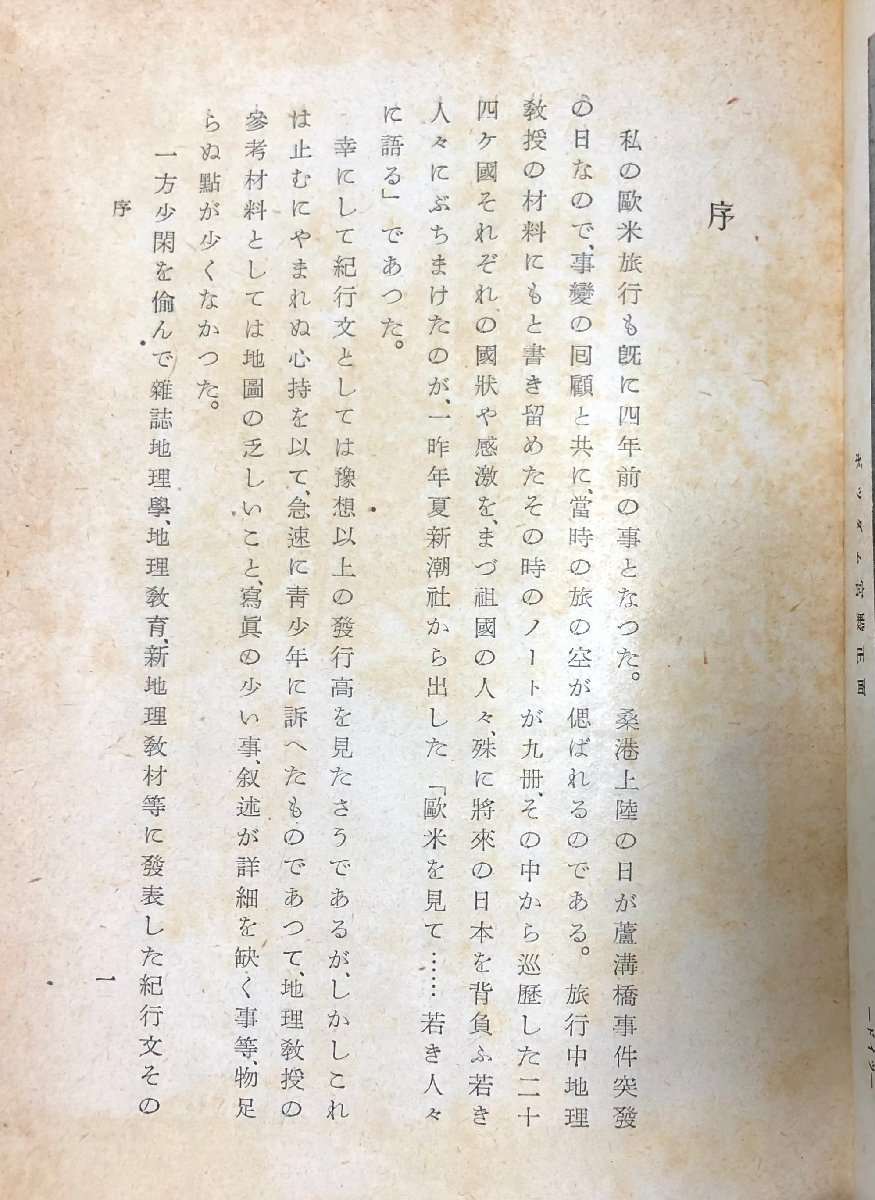 序
私の歐米旅行も既に四年前の事となつた。桑港上陸の日が蘆溝橋事件突發
の日なので、事變の回顧と共に、當時の旅の空が偲ばれるのである。旅行中地理
教授の材料にもと書き留めたその時のノートが九册、その中から巡歷した二十
四ケ國それぞれの國狀や感激を、まづ祖國の人々、殊に將來の日本を背負ふ若き
人々にぶちまけたのが、一昨年夏新潮社から出した「歐米を見て……若き人々
に語る」であつた。
幸にして紀行文としては豫想以上の發行高を見たさうであるが、しかしこれ
は止むにやまれぬ心持を以て、急速に靑少年に訴へたものであつて、地理敎授の
參考材料としては地圖の乏しいこと、寫眞の少い事、叙述が詳細を缺く事等、物足
らぬ點が少くなかつた。
一方少閑を偷んで雜誌地理學、地理敎育、新地理敎材等に發表した紀行文その
序
一